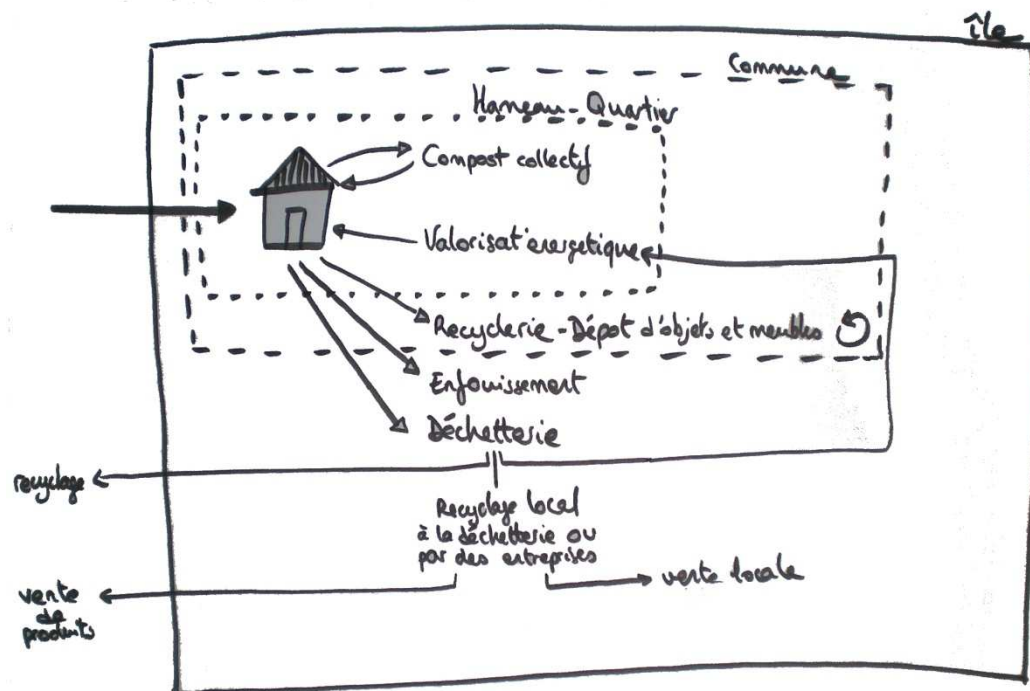 île
Commune
Hameau - Quartier
Compost collectif
Valorisat° énergetique
Recyclerie - Dépot d'objets et meubles
Enfouissement
Déchetterie
recyclage
Recyclage local
à la déchetterie ou
par des entreprises
vente locale
vente
de
produits